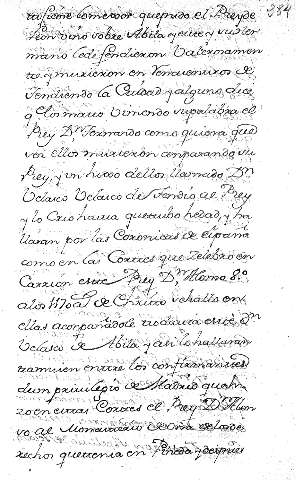 284
tufiese lometdor quepndo el Rey de
Leon vino sobre Abila y este y su her
mano la defendieron Valerosamen
te y murieron en Fenu en
fendiendo la Ciudad y algunos dice
q los mato viniendo supalabra el
Rey Dn fernando como quiera que
ver ellos murieron amparando su
Rey, y un hixo dellos llamado Dn
Velasco Velasco defendio al Rey
y lo Crio hasta que tubo hedad, y ha
llaran por las Coronicas de españa
como en las Cortes que Zelebro en
Carrion este Rey Dn Alonso 8º
años 1170 as de Christo se hallo en
ellas acompañadole todavia este Dn
Velasco de Abila y asi lo hallaran
tamuien entre los confirmantes
de un privilegio de Madrid que hi
zo en estas Cortes el Rey Dn Alon
so al Monasterio de oña de los de
rechos que tenia en Pineda y despues